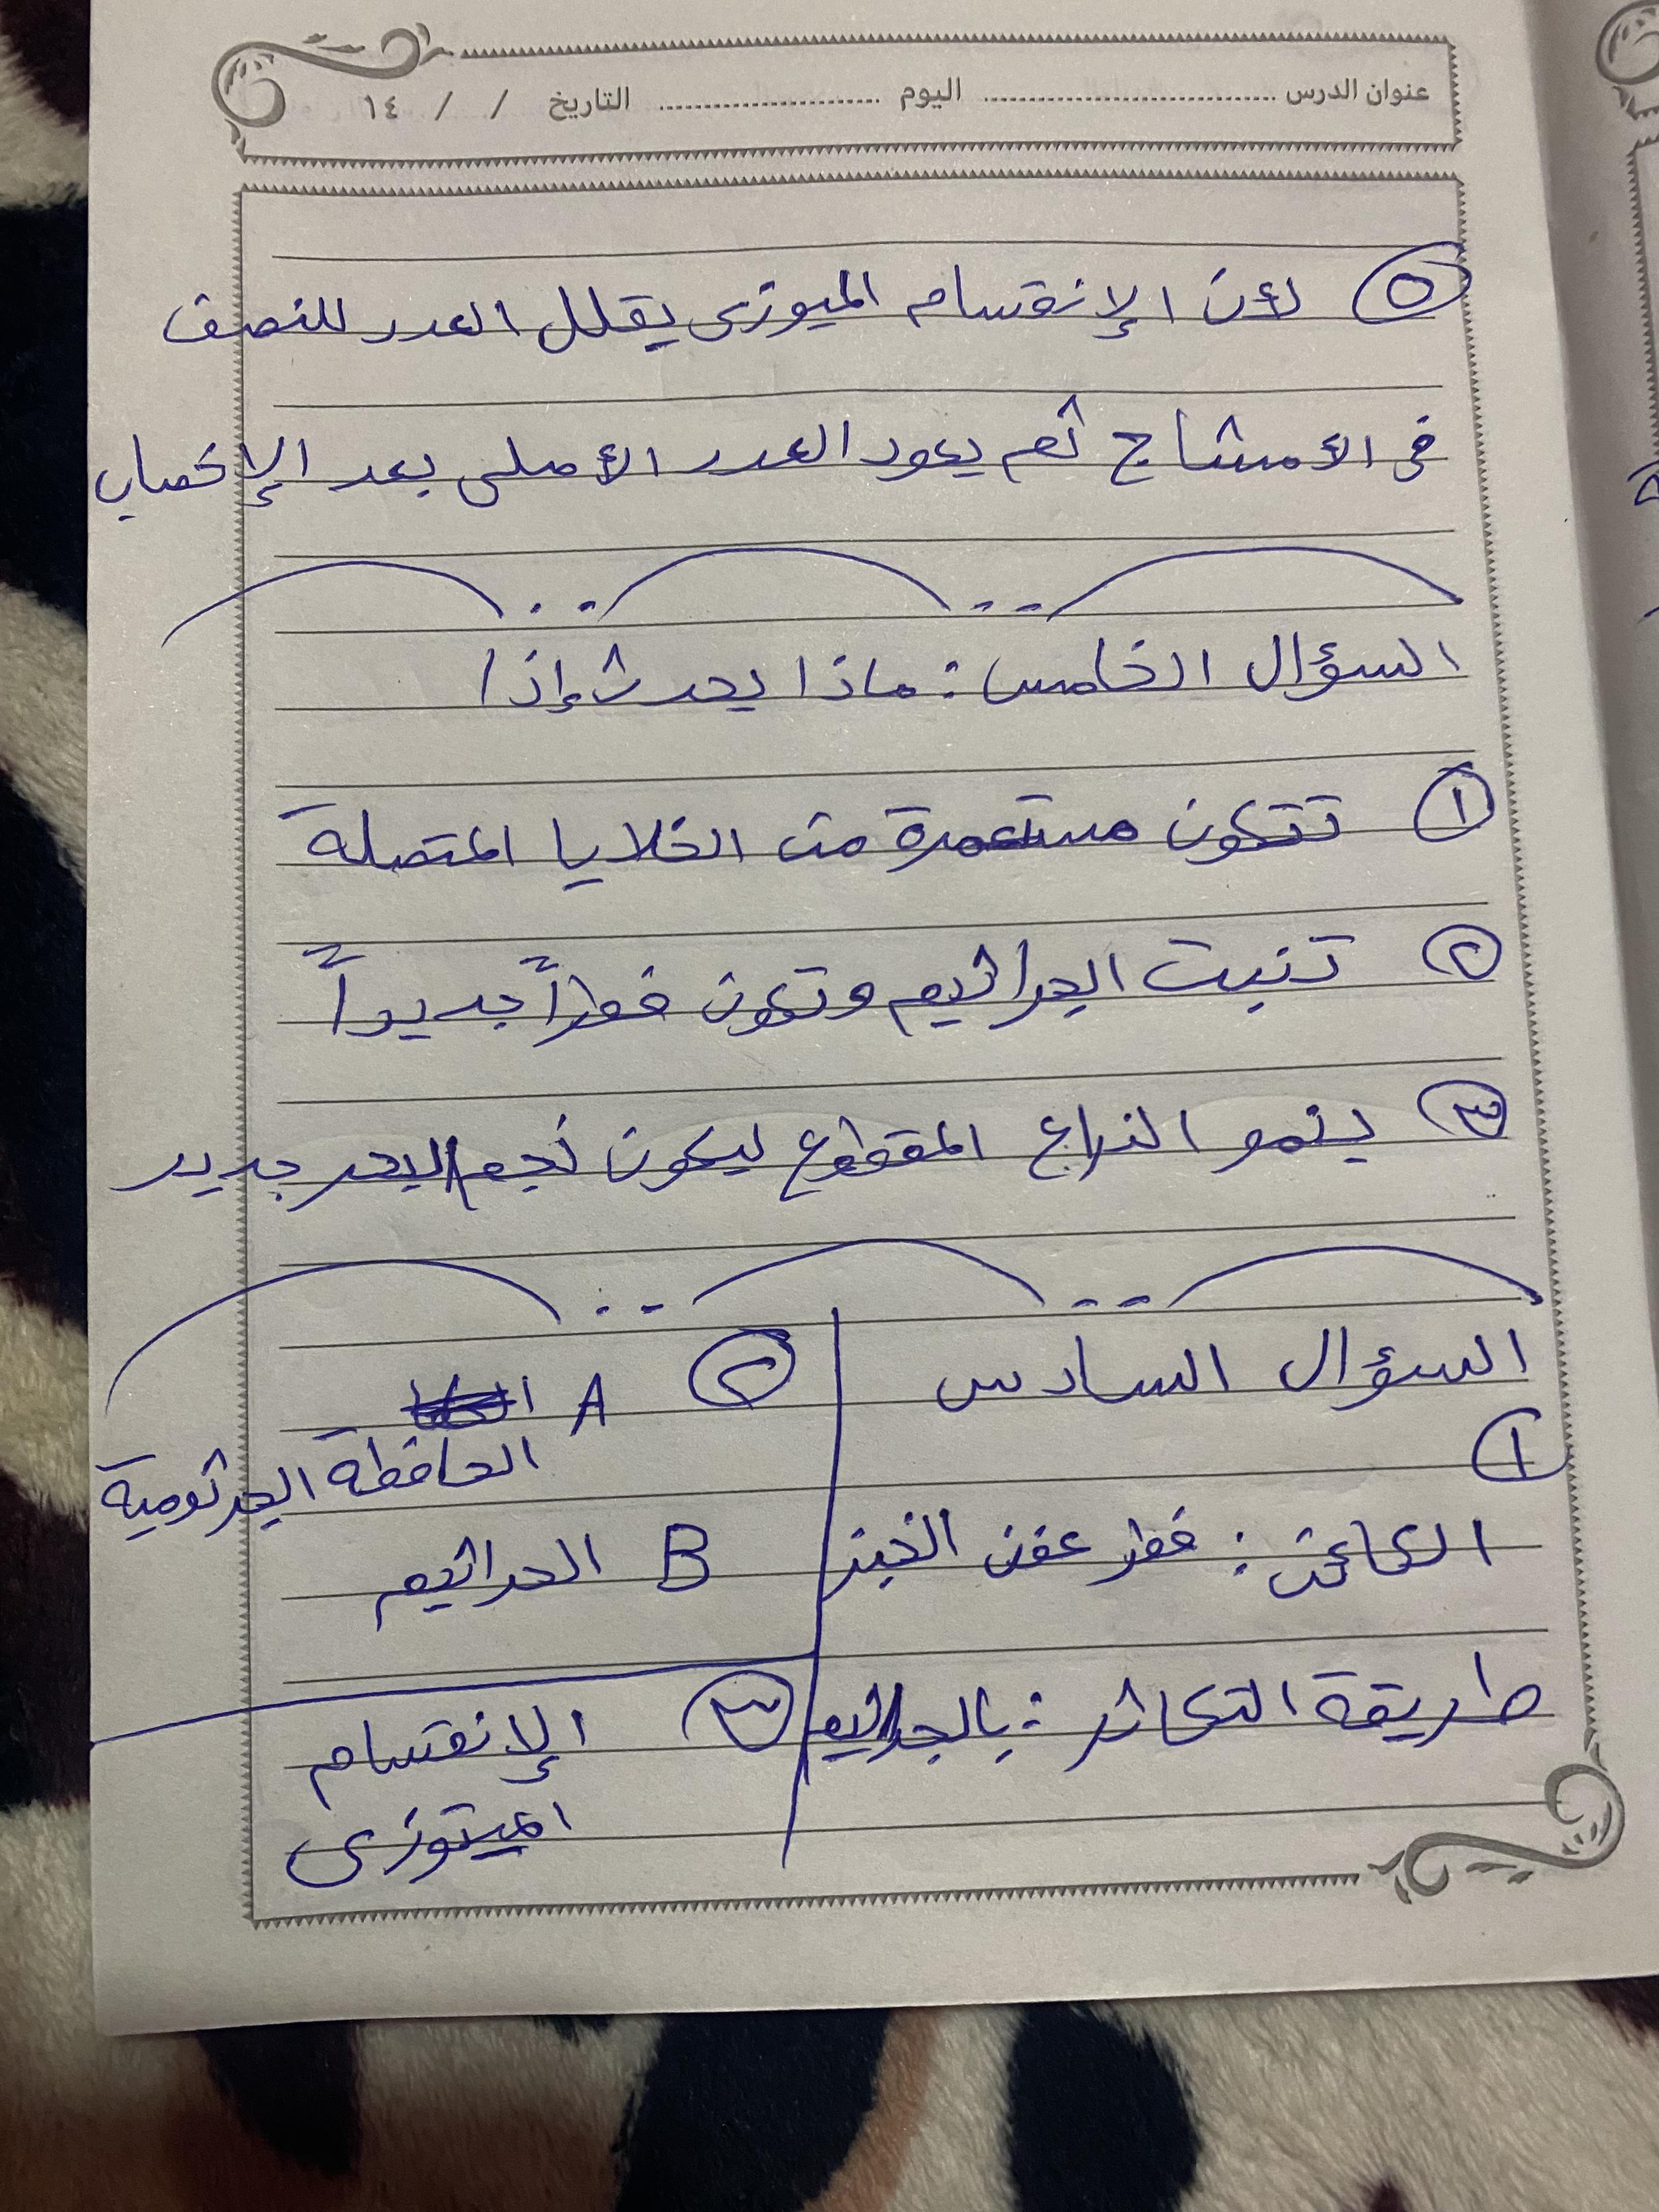 عنوان الدرس ........................ اليوم .................. التاريخ / / ١٤
٥ لأن الإنقسام الميوزى يقلل العدد للنصف
فى الأمشاج ثم يعود العدد الأصلى بعد الإخصاب
السؤال الخامس: ماذا يحدث إذا
١ تتكون مستعمرة من الخلايا المتصلة
٢ تنبت الجراثيم وتكون فطراً جديداً
٣ ينمو الذراع المقطوع ليكون نجم البحر جديد
السؤال السادس
١
الكائن: فطر عفن الخبز
طريقة التكاثر: بالجراثيم
٢ A
الحافظة الجرثومية
B الجراثيم
٣ الإنقسام
الميتوزى